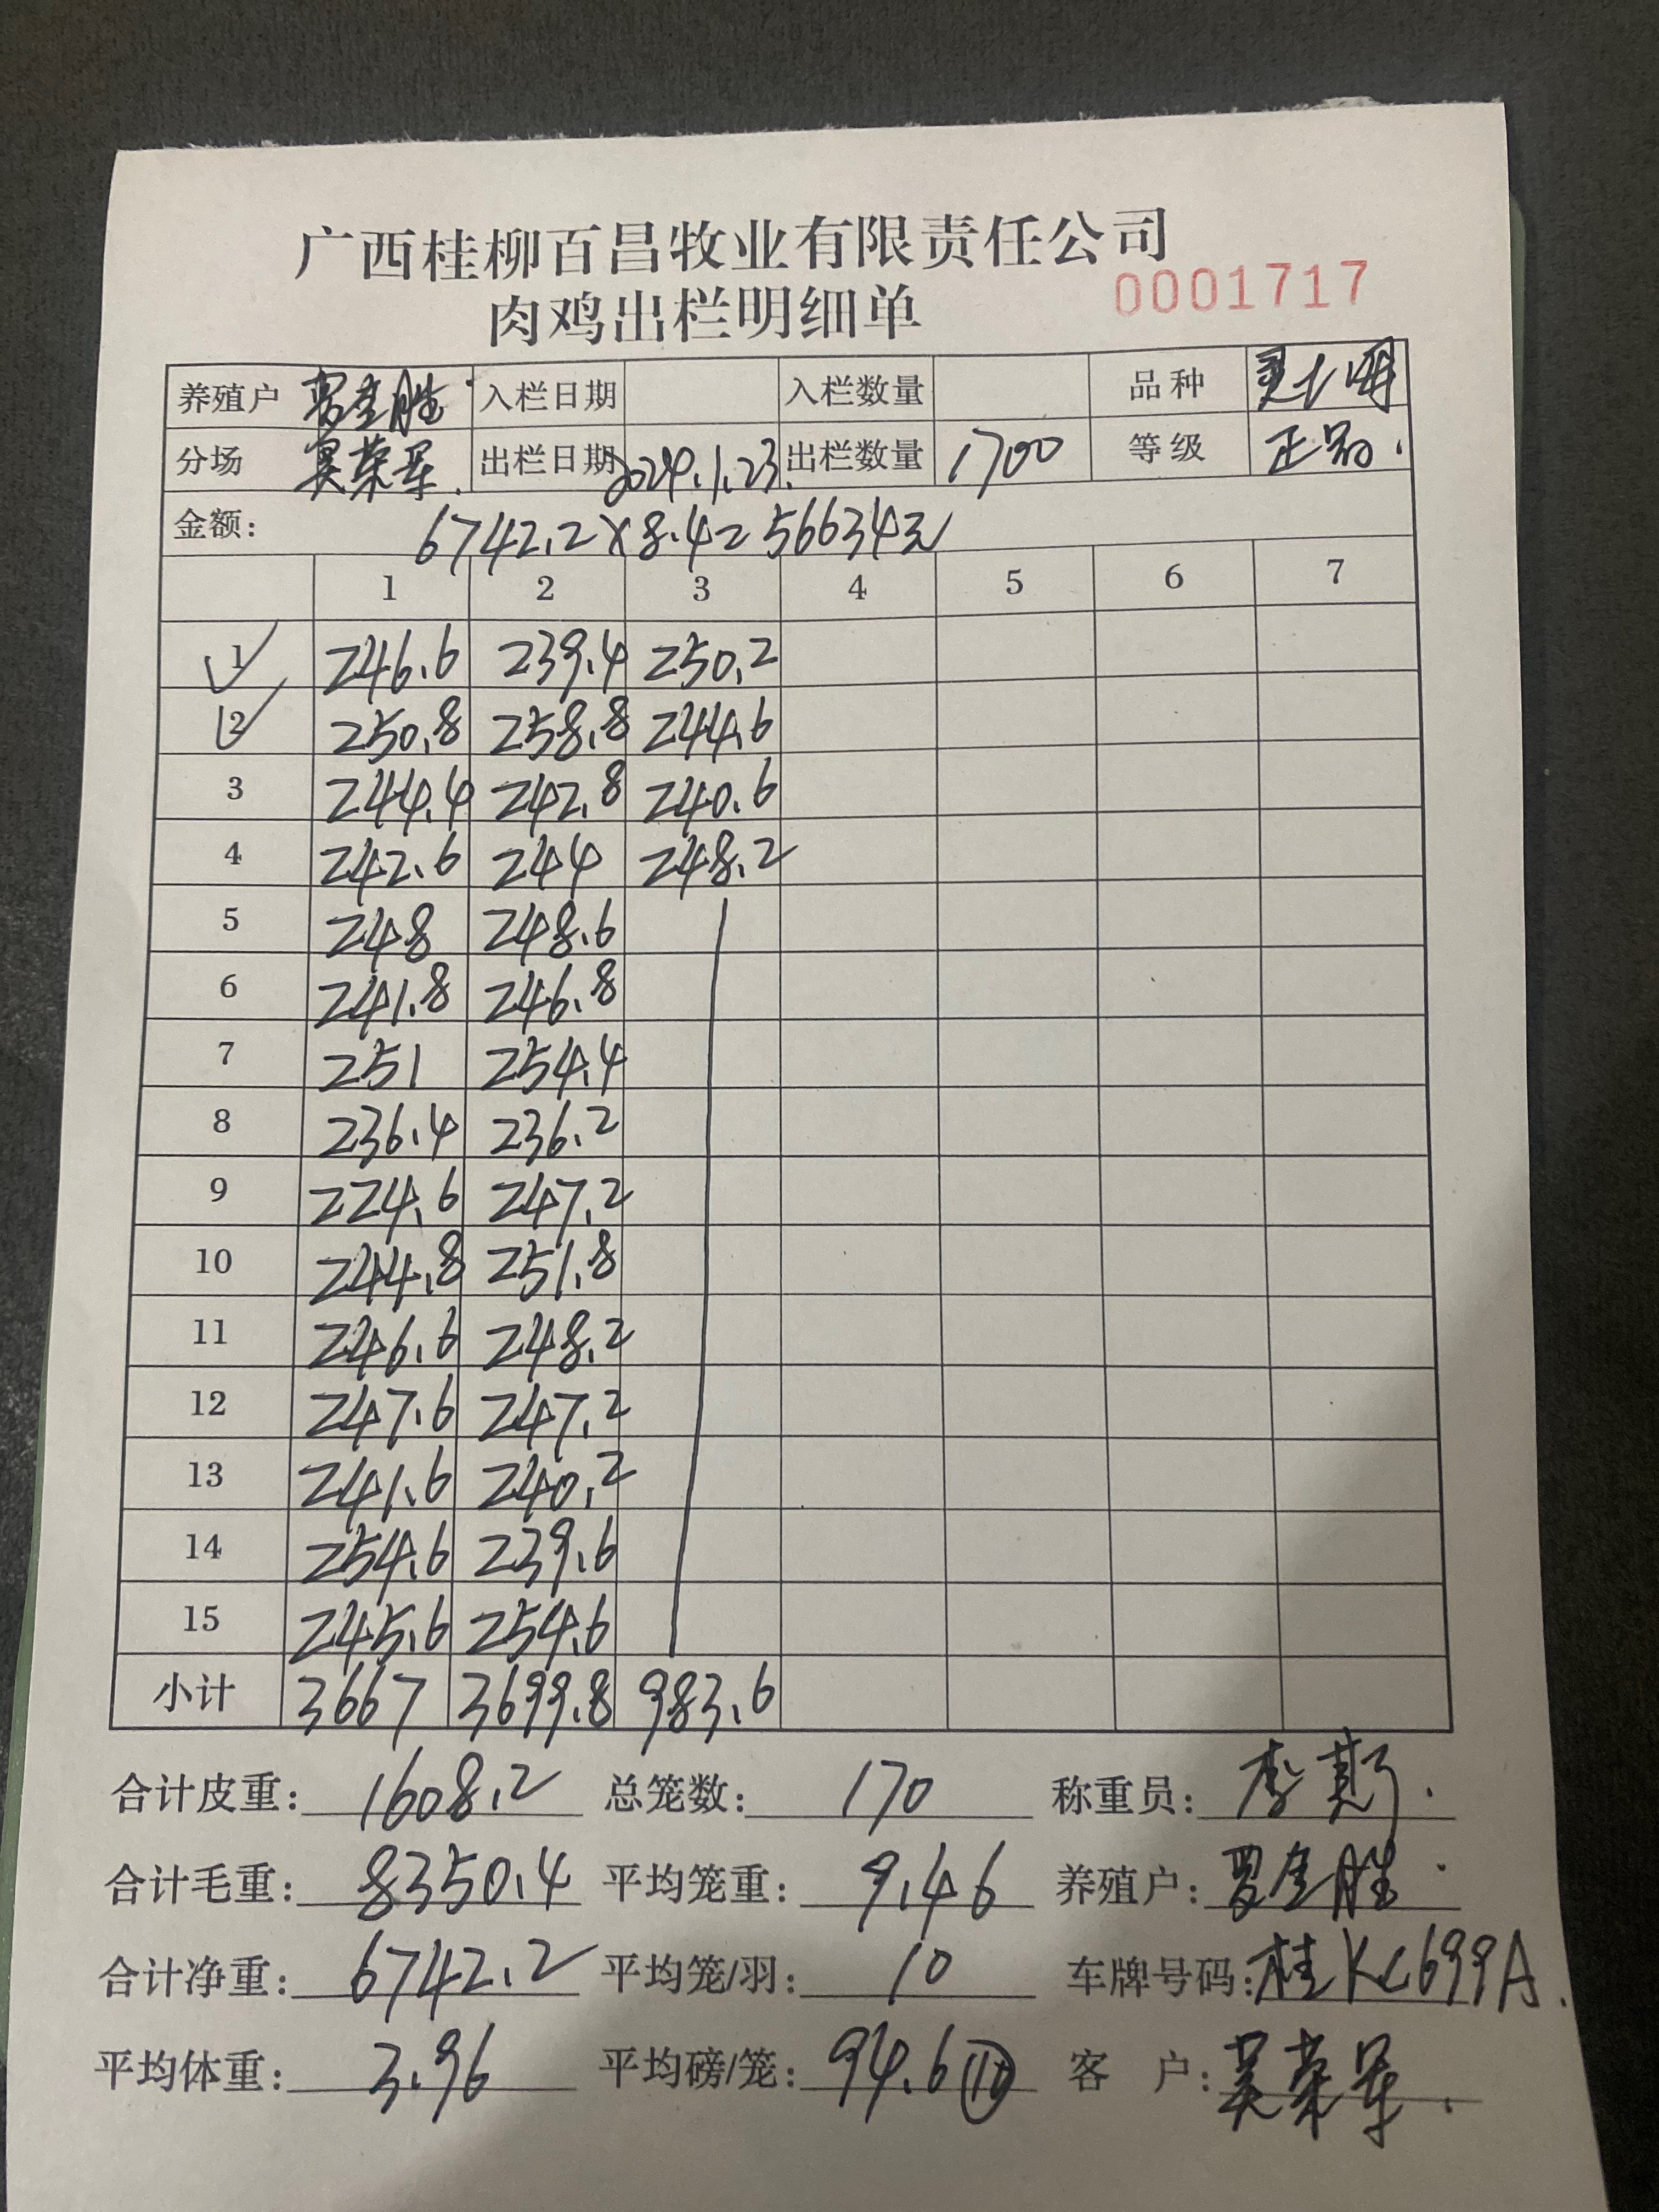 广西桂柳百昌牧业有限责任公司
肉鸡出栏明细单 0001717
养殖户 入栏日期 入栏数量 品种
分场 吴荣军. 出栏日期 2024.1.23. 出栏数量 1700 等级 正品.
金额: 6742.2×8.4=56634元
1 2 3 4 5 6 7
1 246.6 239.4 250.2
2 250.8 258.8 244.6
3 244.4 242.8 240.6
4 242.6 244 248.2
5 248 248.6
6 241.8 246.8
7 251 254.4
8 236.4 236.2
9 224.6 247.2
10 244.8 251.8
11 246.6 248.2
12 247.6 247.2
13 241.6 240.2
14 254.6 239.6
15 245.6 254.6
小计 3667 3699.8 983.6
合计皮重: 1608.2 总笼数: 170 称重员: 李
合计毛重: 8350.4 平均笼重: 9.46 养殖户:
合计净重: 6742.2 平均笼/羽: 10 车牌号码: 桂KC699A.
平均体重: 3.96 平均磅/笼: 94.6 客 户: 吴荣军.